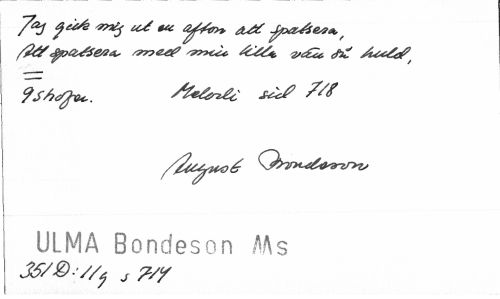 Jag gick mig ut en afton att spatsera,
Att spatsera med min lilla vän så huld,
=
9 strofer. Melodi sid 718
August Bondeson
ULMA Bondeson Ms
351 D:11g s 714